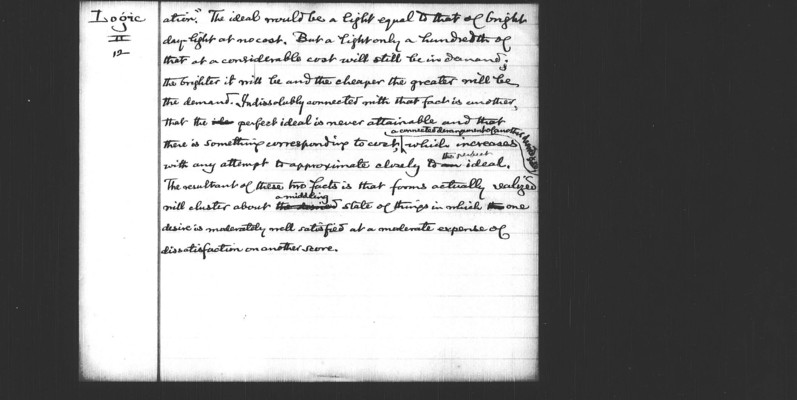 Logic
II
12
ation." The ideal would be a light equal to that of bright
day-light at no cost. But a light only a hundredth of
that at a considerable cost will still be in demand;
the brighter it will be and the cheaper the greater will be
the demand. Indissolubly connected with that fact is another,
that the perfect ideal is never attainable and that
a connected derangement of another
there is something corresponding to cost, which increases
the perfect
with any attempt to approximate closely to an ideal.
The resultant of these two facts is that forms actually realized
a middling
will cluster about the desired state of things in which the one
desire is moderately well satisfied at a moderate expense of
dissatisfaction on another score.